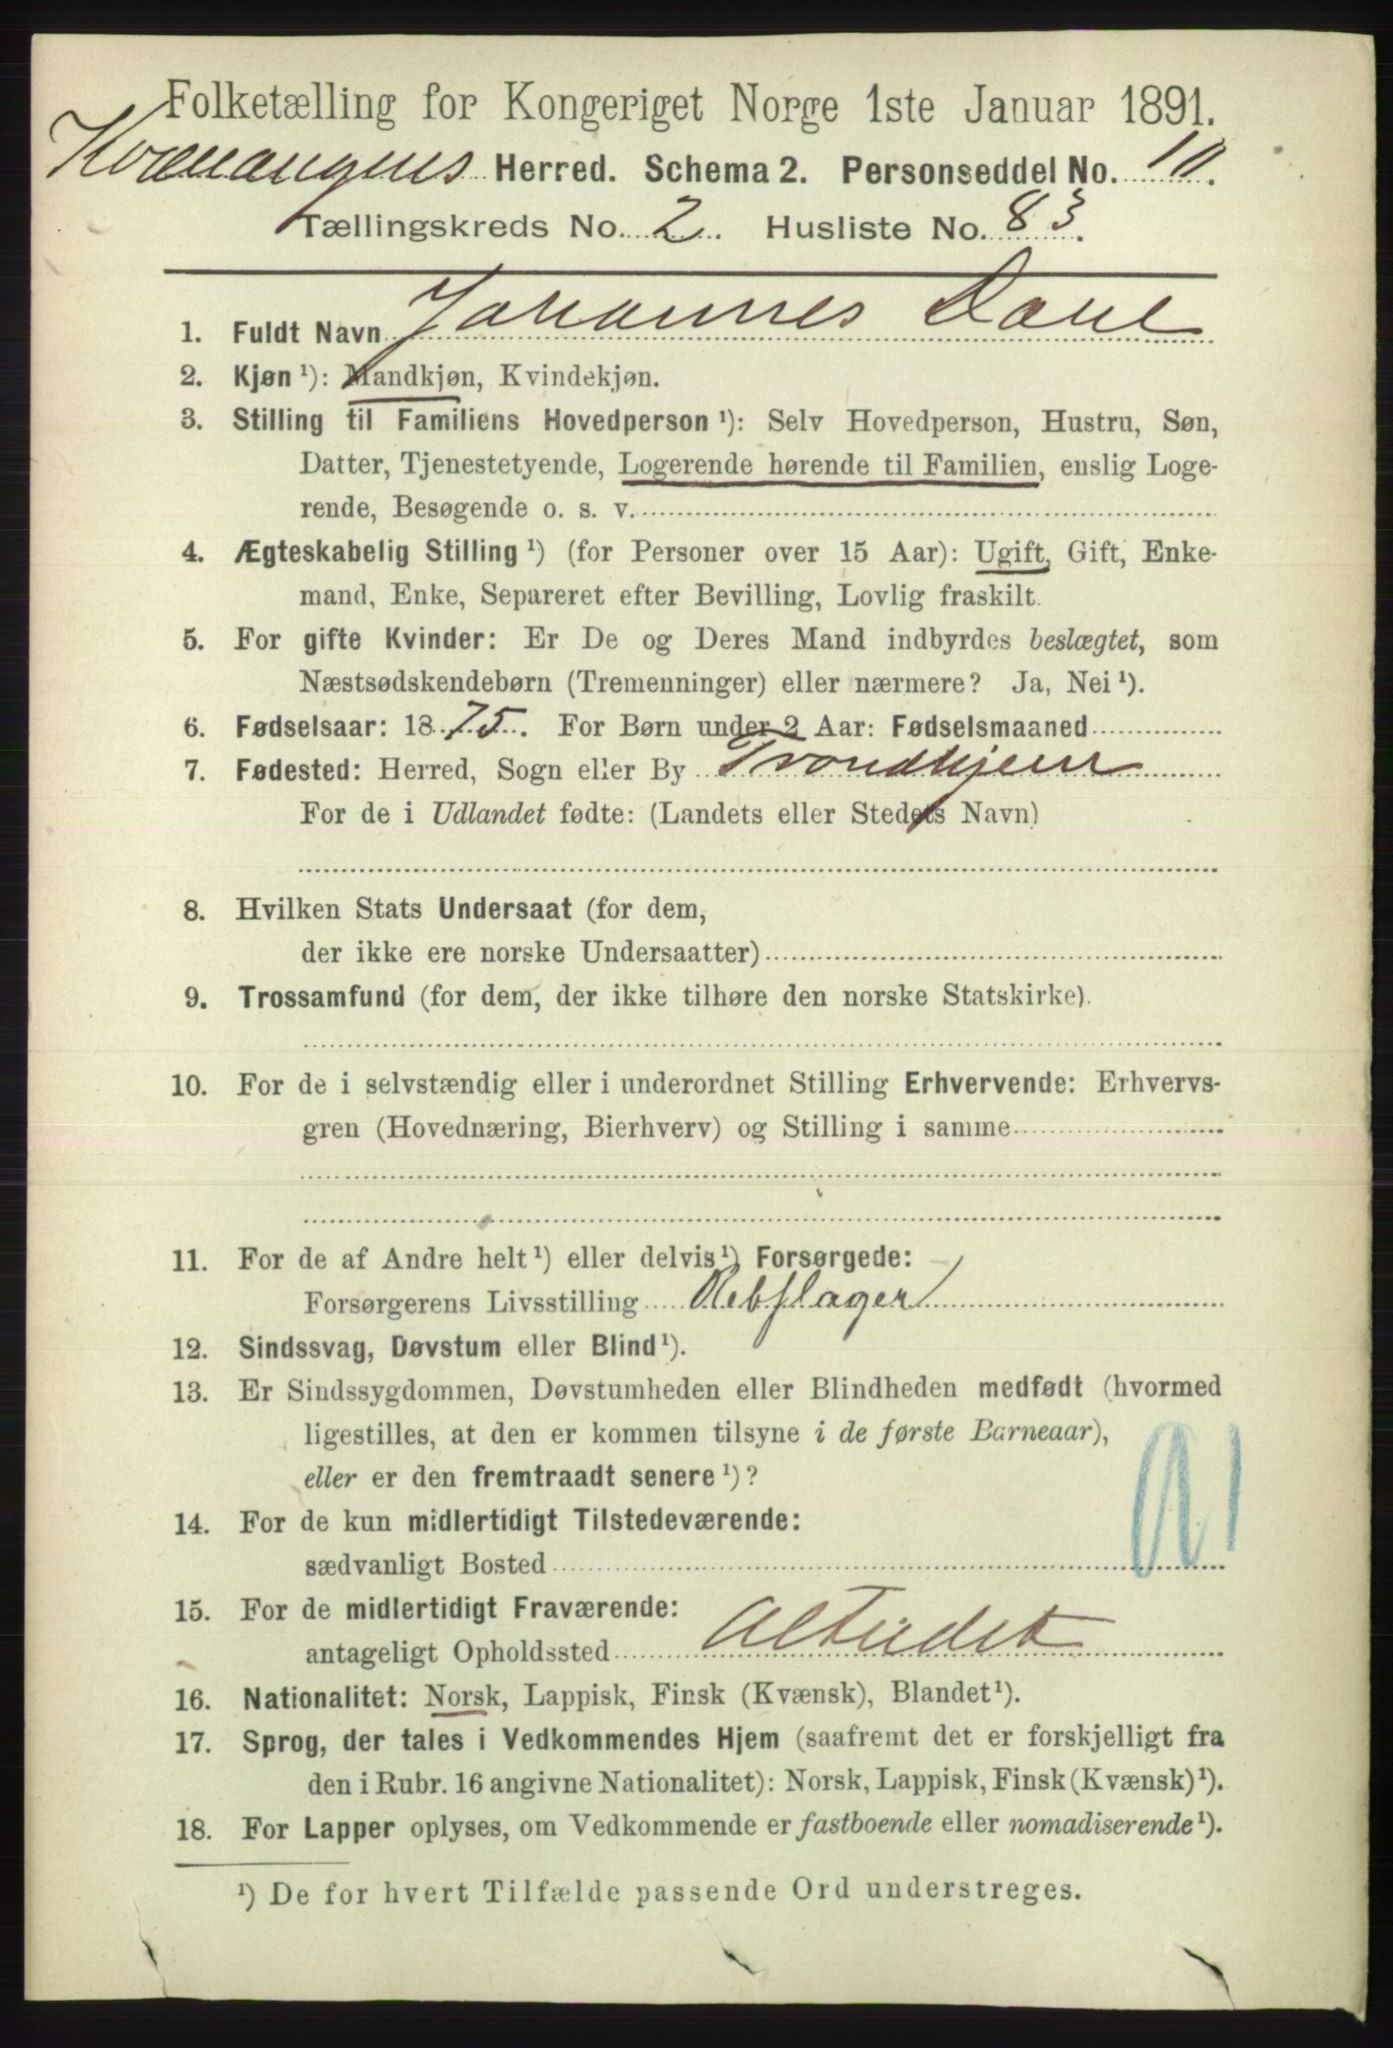 Folketælling for Kongeriget Norge 1ste Januar 1891.
Kvænangens Herred. Schema 2. Personseddel No. 10.
Tællingskreds No. 2. Husliste No. 83.
1. Fuldt Navn Johannes Dahl
2. Kjøn ¹): Mandkjøn, Kvindekjøn.
3. Stilling til Familiens Hovedperson ¹): Selv Hovedperson, Hustru, Søn,
Datter, Tjenestetyende, Logerende hørende til Familien, enslig Loge-
rende, Besøgende o. s. v.
4. Ægteskabelig Stilling ¹) (for Personer over 15 Aar): Ugift, Gift, Enke-
mand, Enke, Separeret efter Bevilling, Lovlig fraskilt.
5. For gifte Kvinder: Er De og Deres Mand indbyrdes beslægtet, som
Næstsødskendebørn (Tremenninger) eller nærmere? Ja, Nei ¹).
6. Fødselsaar: 1875. For Børn under 2 Aar: Fødselsmaaned
7. Fødested: Herred, Sogn eller By Trondhjem
For de i Udlandet fødte: (Landets eller Stedets Navn)
8. Hvilken Stats Undersaat (for dem,
der ikke ere norske Undersaatter)
9. Trossamfund (for dem, der ikke tilhøre den norske Statskirke).
10. For de i selvstændig eller i underordnet Stilling Erhvervende: Erhvervs-
gren (Hovednæring, Bierhverv) og Stilling i samme
11. For de af Andre helt ¹) eller delvis ¹) Forsørgede:
Forsørgerens Livsstilling Rebslager
12. Sindssvag, Døvstum eller Blind ¹).
13. Er Sindssygdommen, Døvstumheden eller Blindheden medfødt (hvormed
ligestilles, at den er kommen tilsyne i de første Barneaar),
eller er den fremtraadt senere ¹)?
14. For de kun midlertidigt Tilstedeværende:
sædvanligt Bosted
15. For de midlertidigt Fraværende:
antageligt Opholdssted Alteidet
16. Nationalitet: Norsk, Lappisk, Finsk (Kvænsk), Blandet ¹).
17. Sprog, der tales i Vedkommendes Hjem (saafremt det er forskjelligt fra
den i Rubr. 16 angivne Nationalitet): Norsk, Lappisk, Finsk (Kvænsk) ¹).
18. For Lapper oplyses, om Vedkommende er fastboende eller nomadiserende ¹).
¹) De for hvert Tilfælde passende Ord understreges.